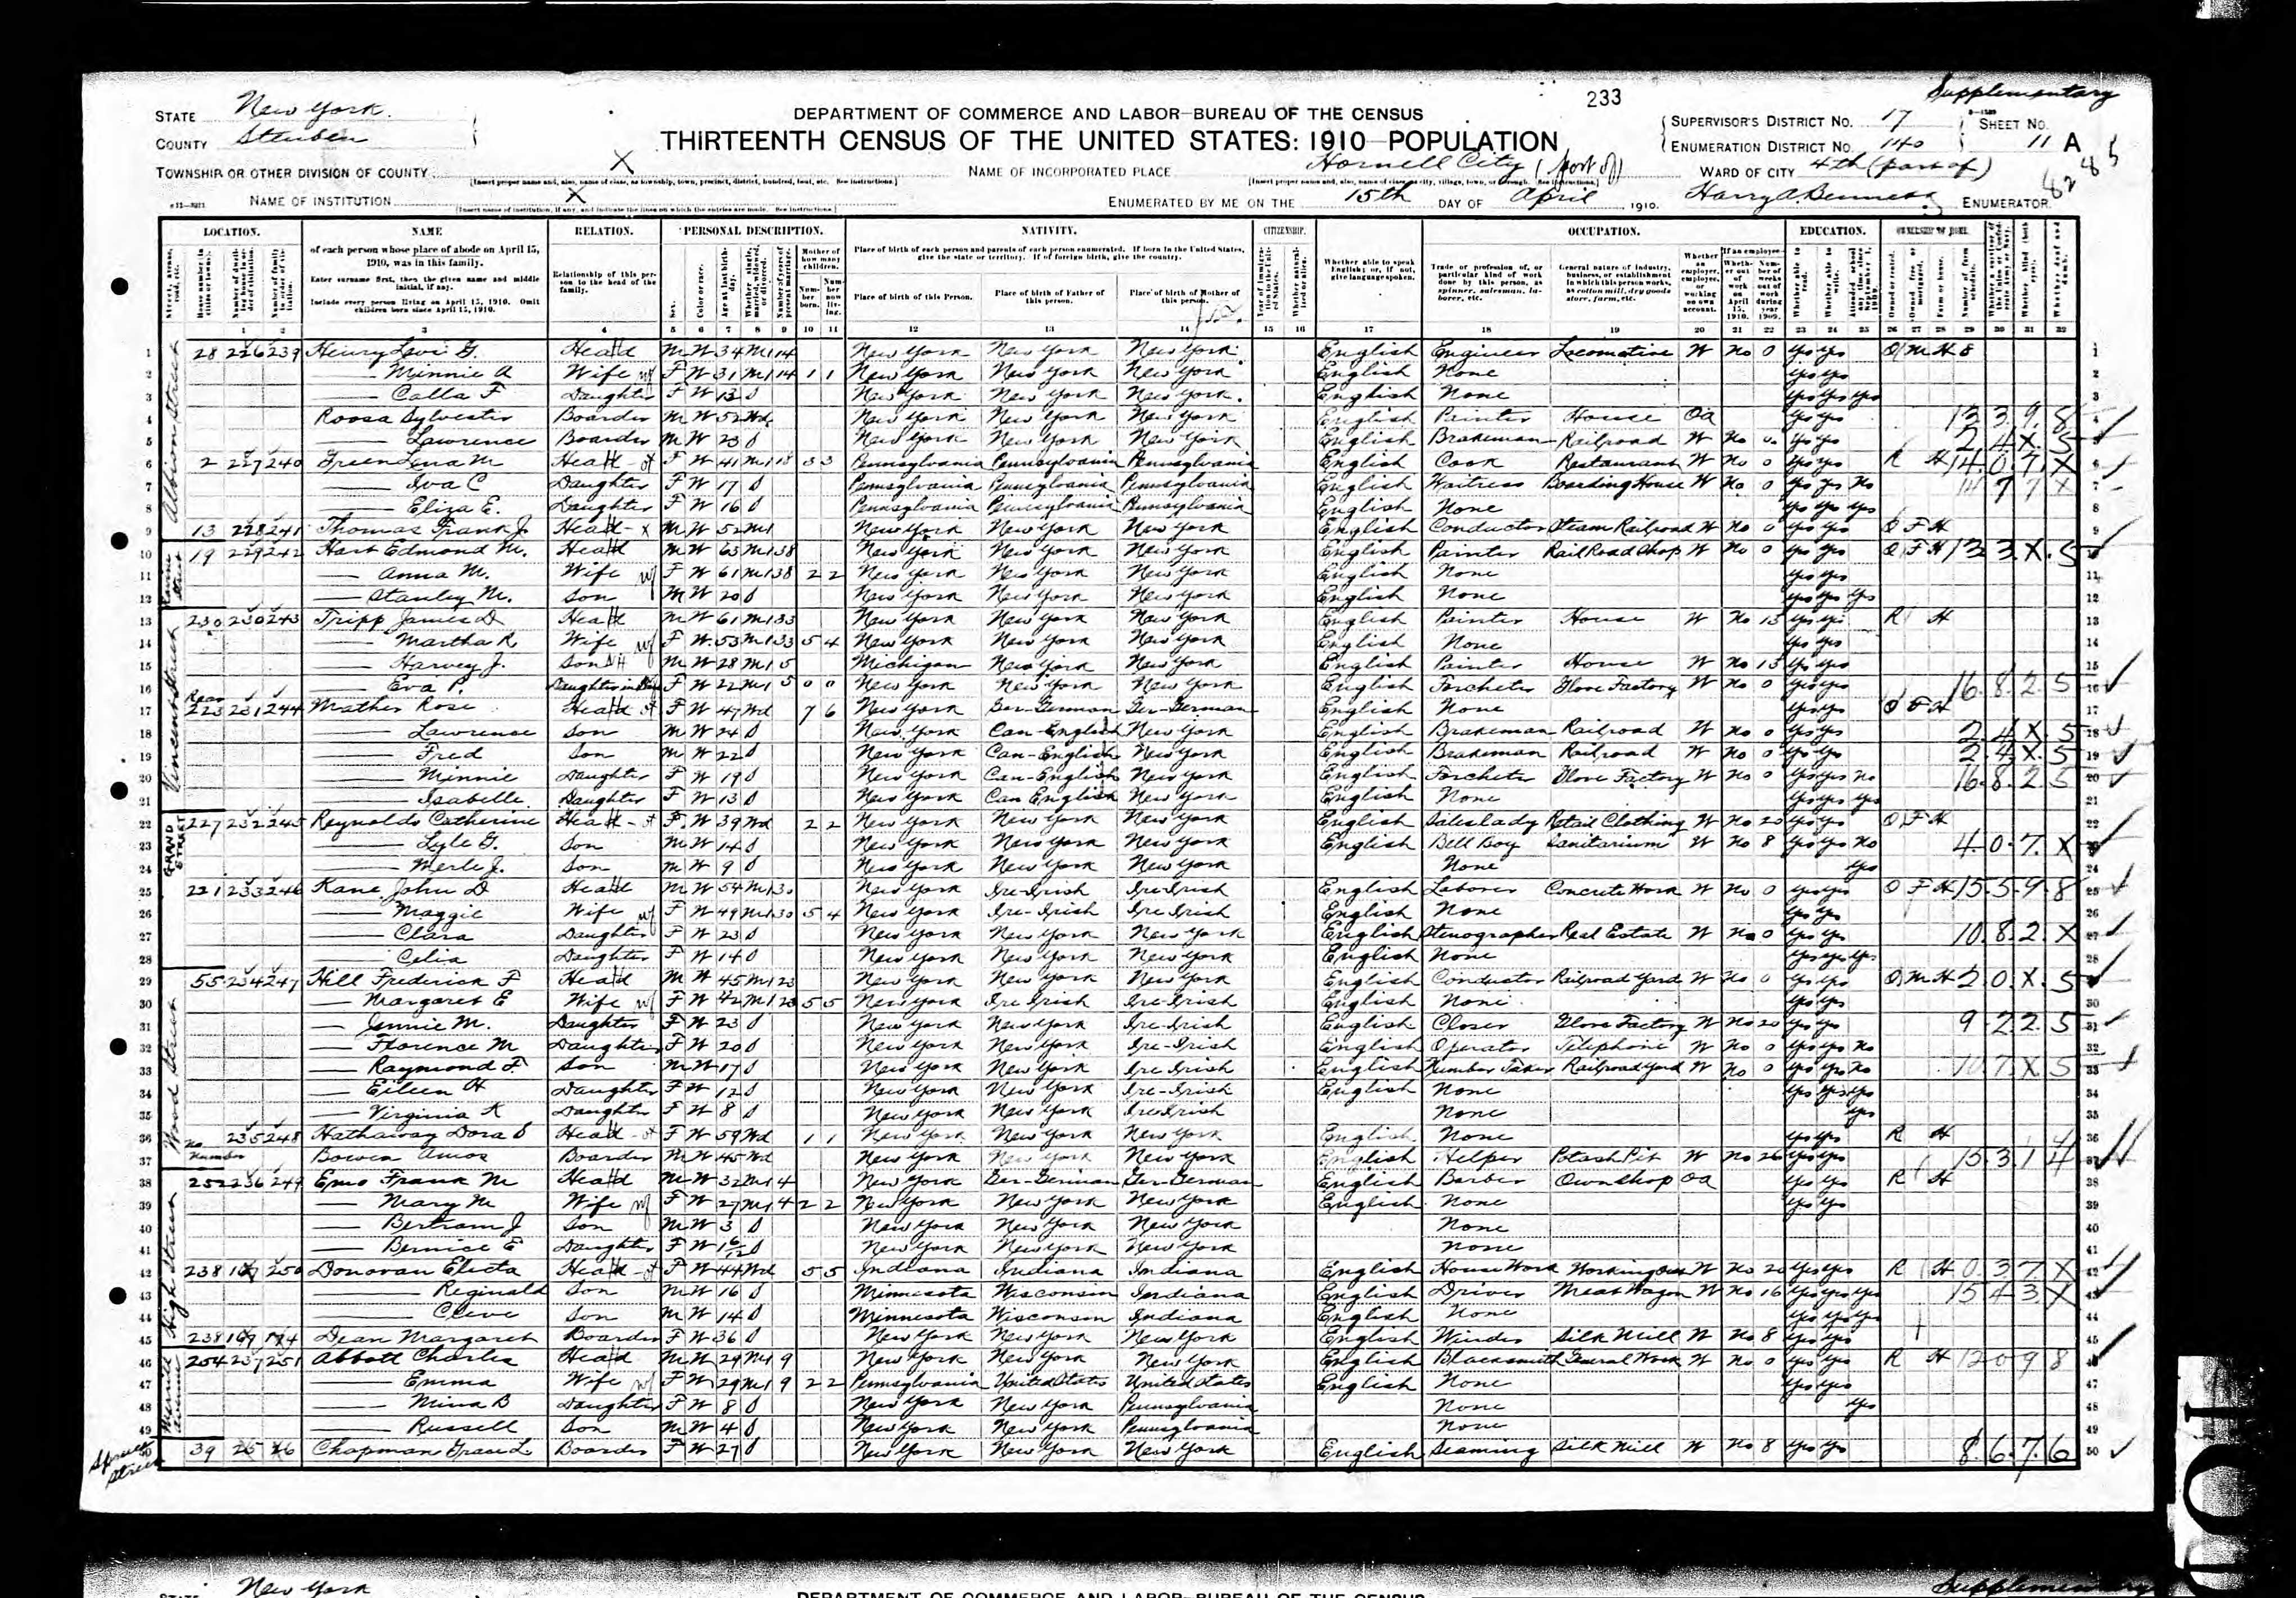 233
Supplementary
STATE New York.
COUNTY Steuben
TOWNSHIP OR OTHER DIVISION OF COUNTY X
NAME OF INSTITUTION X
DEPARTMENT OF COMMERCE AND LABOR—BUREAU OF THE CENSUS
THIRTEENTH CENSUS OF THE UNITED STATES: 1910—POPULATION
NAME OF INCORPORATED PLACE Hornell City (part of)
ENUMERATED BY ME ON THE 15th DAY OF April 1910.
SUPERVISOR'S DISTRICT NO. 17
ENUMERATION DISTRICT NO. 140
SHEET NO. 11 A
WARD OF CITY 4th (part of)
Harry A. Bennett ENUMERATOR.
LOCATION. NAME RELATION. PERSONAL DESCRIPTION. NATIVITY. CITIZENSHIP. OCCUPATION. EDUCATION. OWNERSHIP OF HOME.
of each person whose place of abode on April 15, 1910, was in this family.
Enter surname first, then the given name and middle initial, if any.
Include every person living on April 15, 1910. Omit children born since April 15, 1910.
Relationship of this person to the head of the family.
Place of birth of each person and parents of each person enumerated. If born in the United States, give the state or territory. If of foreign birth, give the country.
Place of birth of this Person. Place of birth of Father of this person. Place of birth of Mother of this person.
Whether able to speak English; or, if not, give language spoken.
Trade or profession of, or particular kind of work done by this person, as spinner, salesman, laborer, etc.
General nature of industry, business, or establishment in which this person works, as cotton mill, dry goods store, farm, etc.
1 2 3 4 5 6 7 8 9 10 11 12 13 14 15 16 17 18 19 20 21 22 23 24 25 26 27 28 29 30 31 32
Albion Street
1 28 226 239 Henry Levi G. Head M W 34 M1 14 New York New York New York English Engineer Locomotive W No 0 yes yes O M H 8
2 — Minnie A Wife F W 31 M1 14 1 1 New York New York New York English None yes yes
3 — Calla F Daughter F W 13 S New York New York New York English None yes yes yes
4 Roosa Sylvester Boarder M W 52 Wd New York New York New York English Painter House Oa yes yes
5 — Lawrence Boarder M W 23 S New York New York New York English Brakeman Railroad W No 0 yes yes
6 2 227 240 Green Lena M Head F W 41 M1 18 3 3 Pennsylvania Pennsylvania Pennsylvania English Cook Restaurant W No 0 yes yes R H
7 — Iva C Daughter F W 17 S Pennsylvania Pennsylvania Pennsylvania English Waitress Boarding House W No 0 yes yes No
8 — Eliza E. Daughter F W 16 S Pennsylvania Pennsylvania Pennsylvania English None yes yes yes
9 13 228 241 Thomas Frank J. Head M W 52 M1 New York New York New York English Conductor Steam Railroad W No 0 yes yes O F H
10 19 229 242 Hart Edmond M. Head M W 63 M1 38 New York New York New York English Painter Rail Road Shop W No 0 yes yes O F H
11 — Anna M. Wife F W 61 M1 38 2 2 New York New York New York English None yes yes
12 — Stanley M. Son M W 20 S New York New York New York English None yes yes yes
Vincent Street
13 230 230 243 Tripp James D Head M W 61 M1 33 New York New York New York English Painter House W No 13 yes yes R H
14 — Martha R Wife F W 53 M1 33 5 4 New York New York New York English None yes yes
15 — Harvey J. Son M W 28 M1 5 Michigan New York New York English Painter House W No 13 yes yes
16 — Eva P. Daughter in law F W 22 M1 5 0 0 New York New York New York English Forcheter Glove Factory W No 0 yes yes
17 Rear 223 231 244 Mather Rose Head F W 47 Wd 7 6 New York Ger-German Ger-German English None yes yes O F H
18 — Lawrence Son M W 24 S New York Can-English New York English Brakeman Railroad W No 0 yes yes
19 — Fred Son M W 22 S New York Can-English New York English Brakeman Railroad W No 0 yes yes
20 — Minnie Daughter F W 19 S New York Can-English New York English Forcheter Glove Factory W No 0 yes yes no
21 — Isabelle Daughter F W 13 S New York Can English New York English None yes yes yes
GRAND STREET
22 227 232 245 Reynolds Catherine Head F W 39 Wd 2 2 New York New York New York English Saleslady Retail Clothing W No 20 yes yes O F H
23 — Lyle G. Son M W 14 S New York New York New York English Bell Boy Sanitarium W No 8 yes yes No
24 — Merle J. Son M W 9 S New York New York New York None yes
25 221 233 246 Kane John D Head M W 54 M1 30 New York Ire-Irish Ire-Irish English Laborer Concrete Work W No 0 yes yes O F H
26 — Maggie Wife F W 49 M1 30 5 4 New York Ire-Irish Ire Irish English None yes yes
27 — Clara Daughter F W 23 S New York New York New York English Stenographer Real Estate W No 0 yes yes
28 — Celia Daughter F W 14 S New York New York New York English None yes yes yes
Wood Street
29 55 234 247 Hill Frederick F Head M W 45 M1 23 New York New York New York English Conductor Railroad Yard W No 0 yes yes O M H
30 — Margaret E Wife F W 42 M1 23 5 5 New York Ire Irish Ire-Irish English None yes yes
31 — Jennie M. Daughter F W 23 S New York New York Ire-Irish English Closer Glove Factory W No 20 yes yes
32 — Florence M Daughter F W 20 S New York New York Ire-Irish English Operator Telephone W No 0 yes yes No
33 — Raymond F Son M W 17 S New York New York Ire Irish English Number Taker Railroad Yard W No 0 yes yes No
34 — Eileen H Daughter F W 12 S New York New York Ire-Irish English None yes yes yes
35 — Virginia K Daughter F W 8 S New York New York Ire Irish None yes
36 No number 235 248 Hathaway Dora S Head F W 59 Wd 1 1 New York New York New York English None yes yes R H
37 Bowen Amos Boarder M W 45 Wd New York New York New York English Helper Potash Pit W No 26 yes yes
High Street
38 252 236 249 Emo Frank M Head M W 32 M1 4 New York Ger-German Ger-German English Barber Own Shop Oa yes yes R H
39 — Mary M Wife F W 27 M1 4 2 2 New York New York New York English None yes yes
40 — Bertram J Son M W 3 S New York New York New York None
41 — Bernice E Daughter F W 1 6/12 S New York New York New York None
42 238 167 250 Donovan Electa Head F W 44 Wd 5 5 Indiana Indiana Indiana English House Work Working Out W No 20 yes yes R H
43 — Reginald Son M W 16 S Minnesota Wisconsin Indiana English Driver Meat Wagon W No 16 yes yes yes
44 — Cleve Son M W 14 S Minnesota Wisconsin Indiana English None yes yes yes
45 238 167 174 Dean Margaret Boarder F W 36 S New York New York New York English Winder Silk Mill W No 8 yes yes
Merrill Avenue
46 254 237 251 Abbott Charles Head M W 29 M1 9 New York New York New York English Blacksmith General Work W No 0 yes yes R H
47 — Emma Wife F W 29 M1 9 2 2 Pennsylvania United States United States English None yes yes
48 — Mina B Daughter F W 8 S New York New York Pennsylvania None yes
49 — Russell Son M W 4 S New York New York Pennsylvania None
Spruce Street
50 39 Chapman Grace L. Boarder F W 27 S New York New York New York English Seaming Silk Mill W No 8 yes yes 8. 6. 7. 6
New York
DEPARTMENT OF COMMERCE AND LABOR—BUREAU OF THE CENSUS
Supplementary